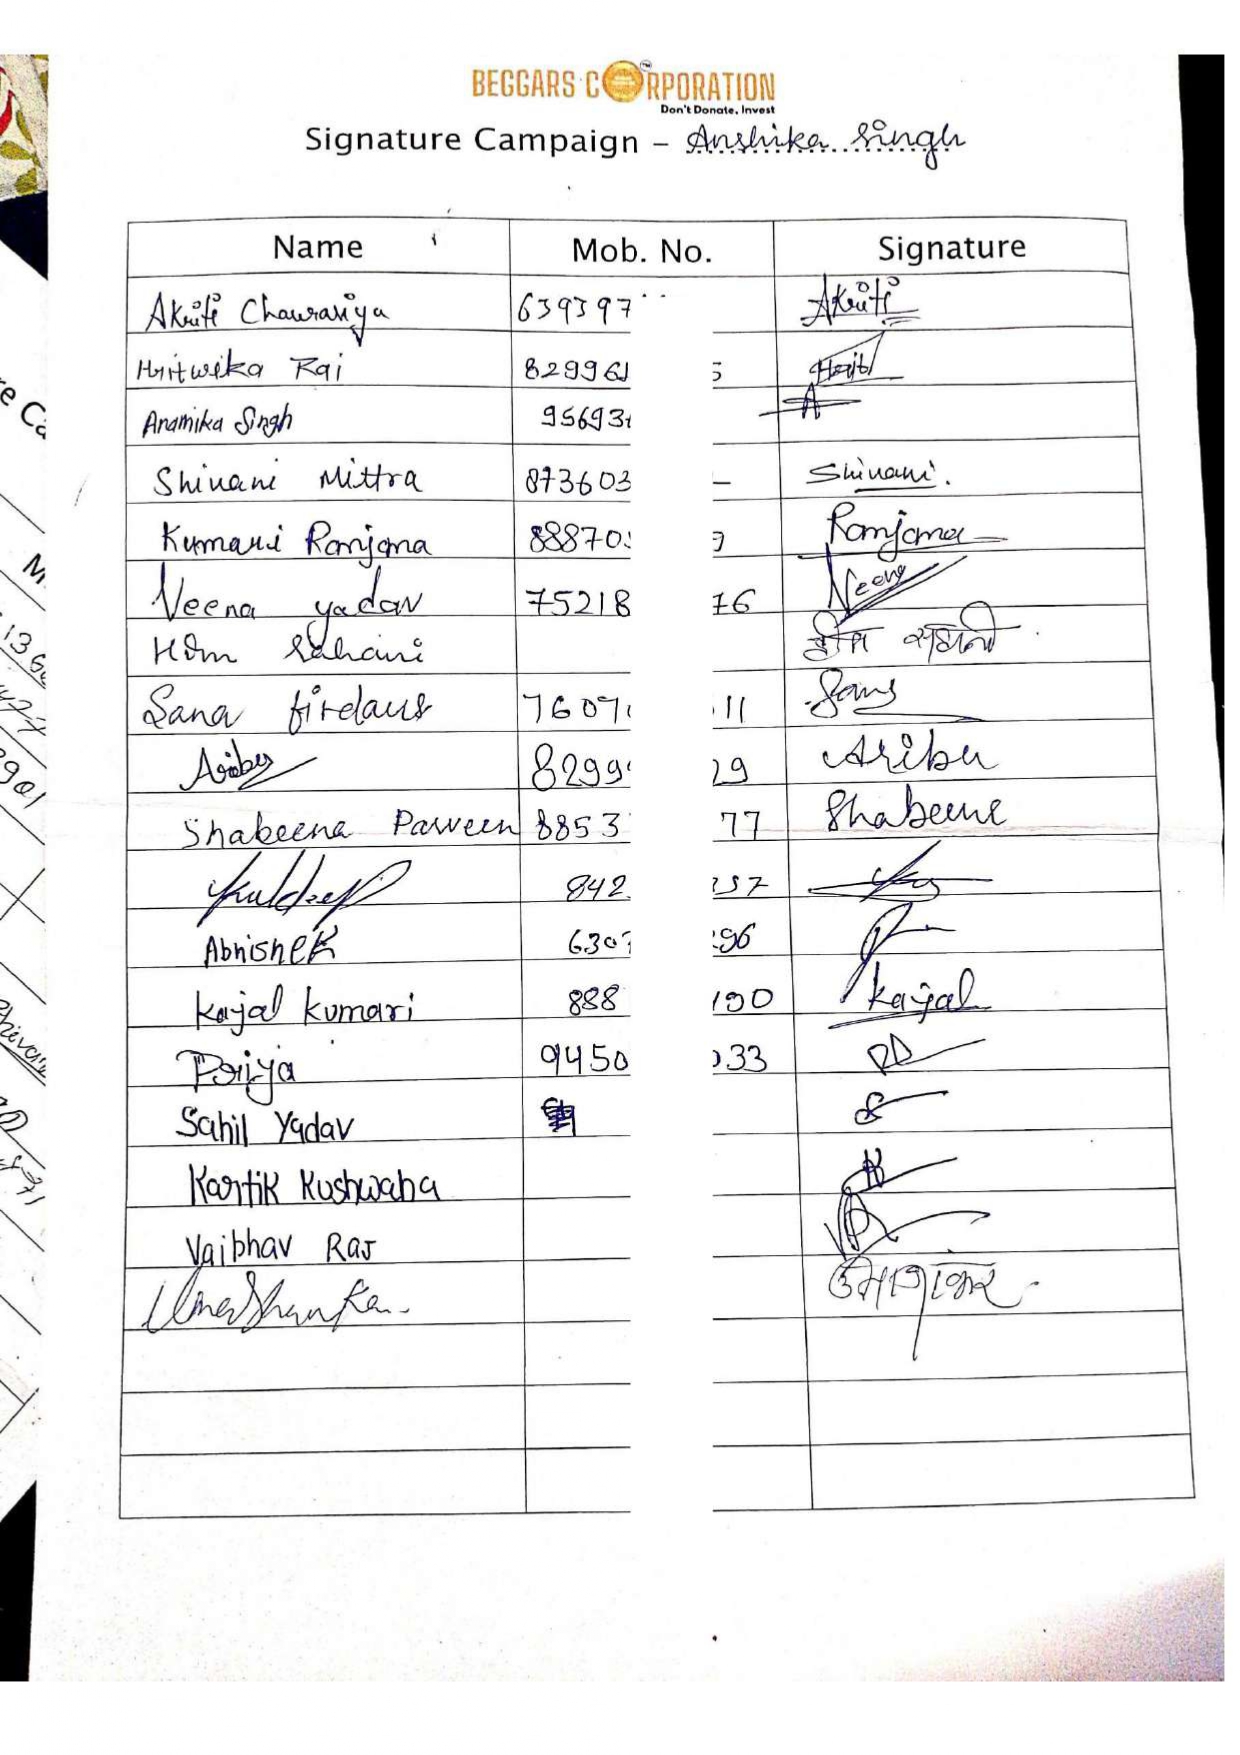 BEGGARS CORPORATION
Don't Donate, Invest
Signature Campaign – Anshika Singh
Name Mob. No. Signature
Akriti Chaurasiya 639397 Akriti
Hritwika Rai 82996 5
Anamika Singh 9569 A
Shivani Mittra 873603 Shivani.
Kumari Ranjana 88870 9 Ranjana
Neena yadav 75218 76 Neena
Hom Sahani होम साहानी
Sana firdaus 7607 11 Sana
Ariba 8299 29 Ariba
Shabeena Parveen 8853 77 Shabeene
Kuldeep 842 57
Abhishek 630 96
Kajal Kumari 888 190 Kajal
Priya 9450 033
Sahil Yadav
Kartik Kushwaha
Vaibhav Rai
Umashankar उमाशंकर